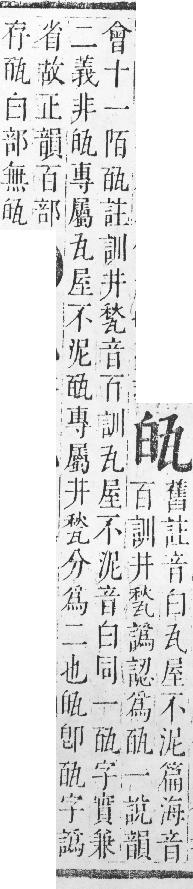 ⿰白瓦
舊註音白瓦屋不泥篇海音
百訓井甃譌認爲瓸一說韻
會十一陌瓸註訓井甃音百訓瓦屋不泥音白同一瓸字實兼
二義非⿰白瓦專屬瓦屋不泥瓸專屬井甃分爲二也⿰白瓦卽瓸字譌
省故正韻百部
存瓸白部無⿰白瓦